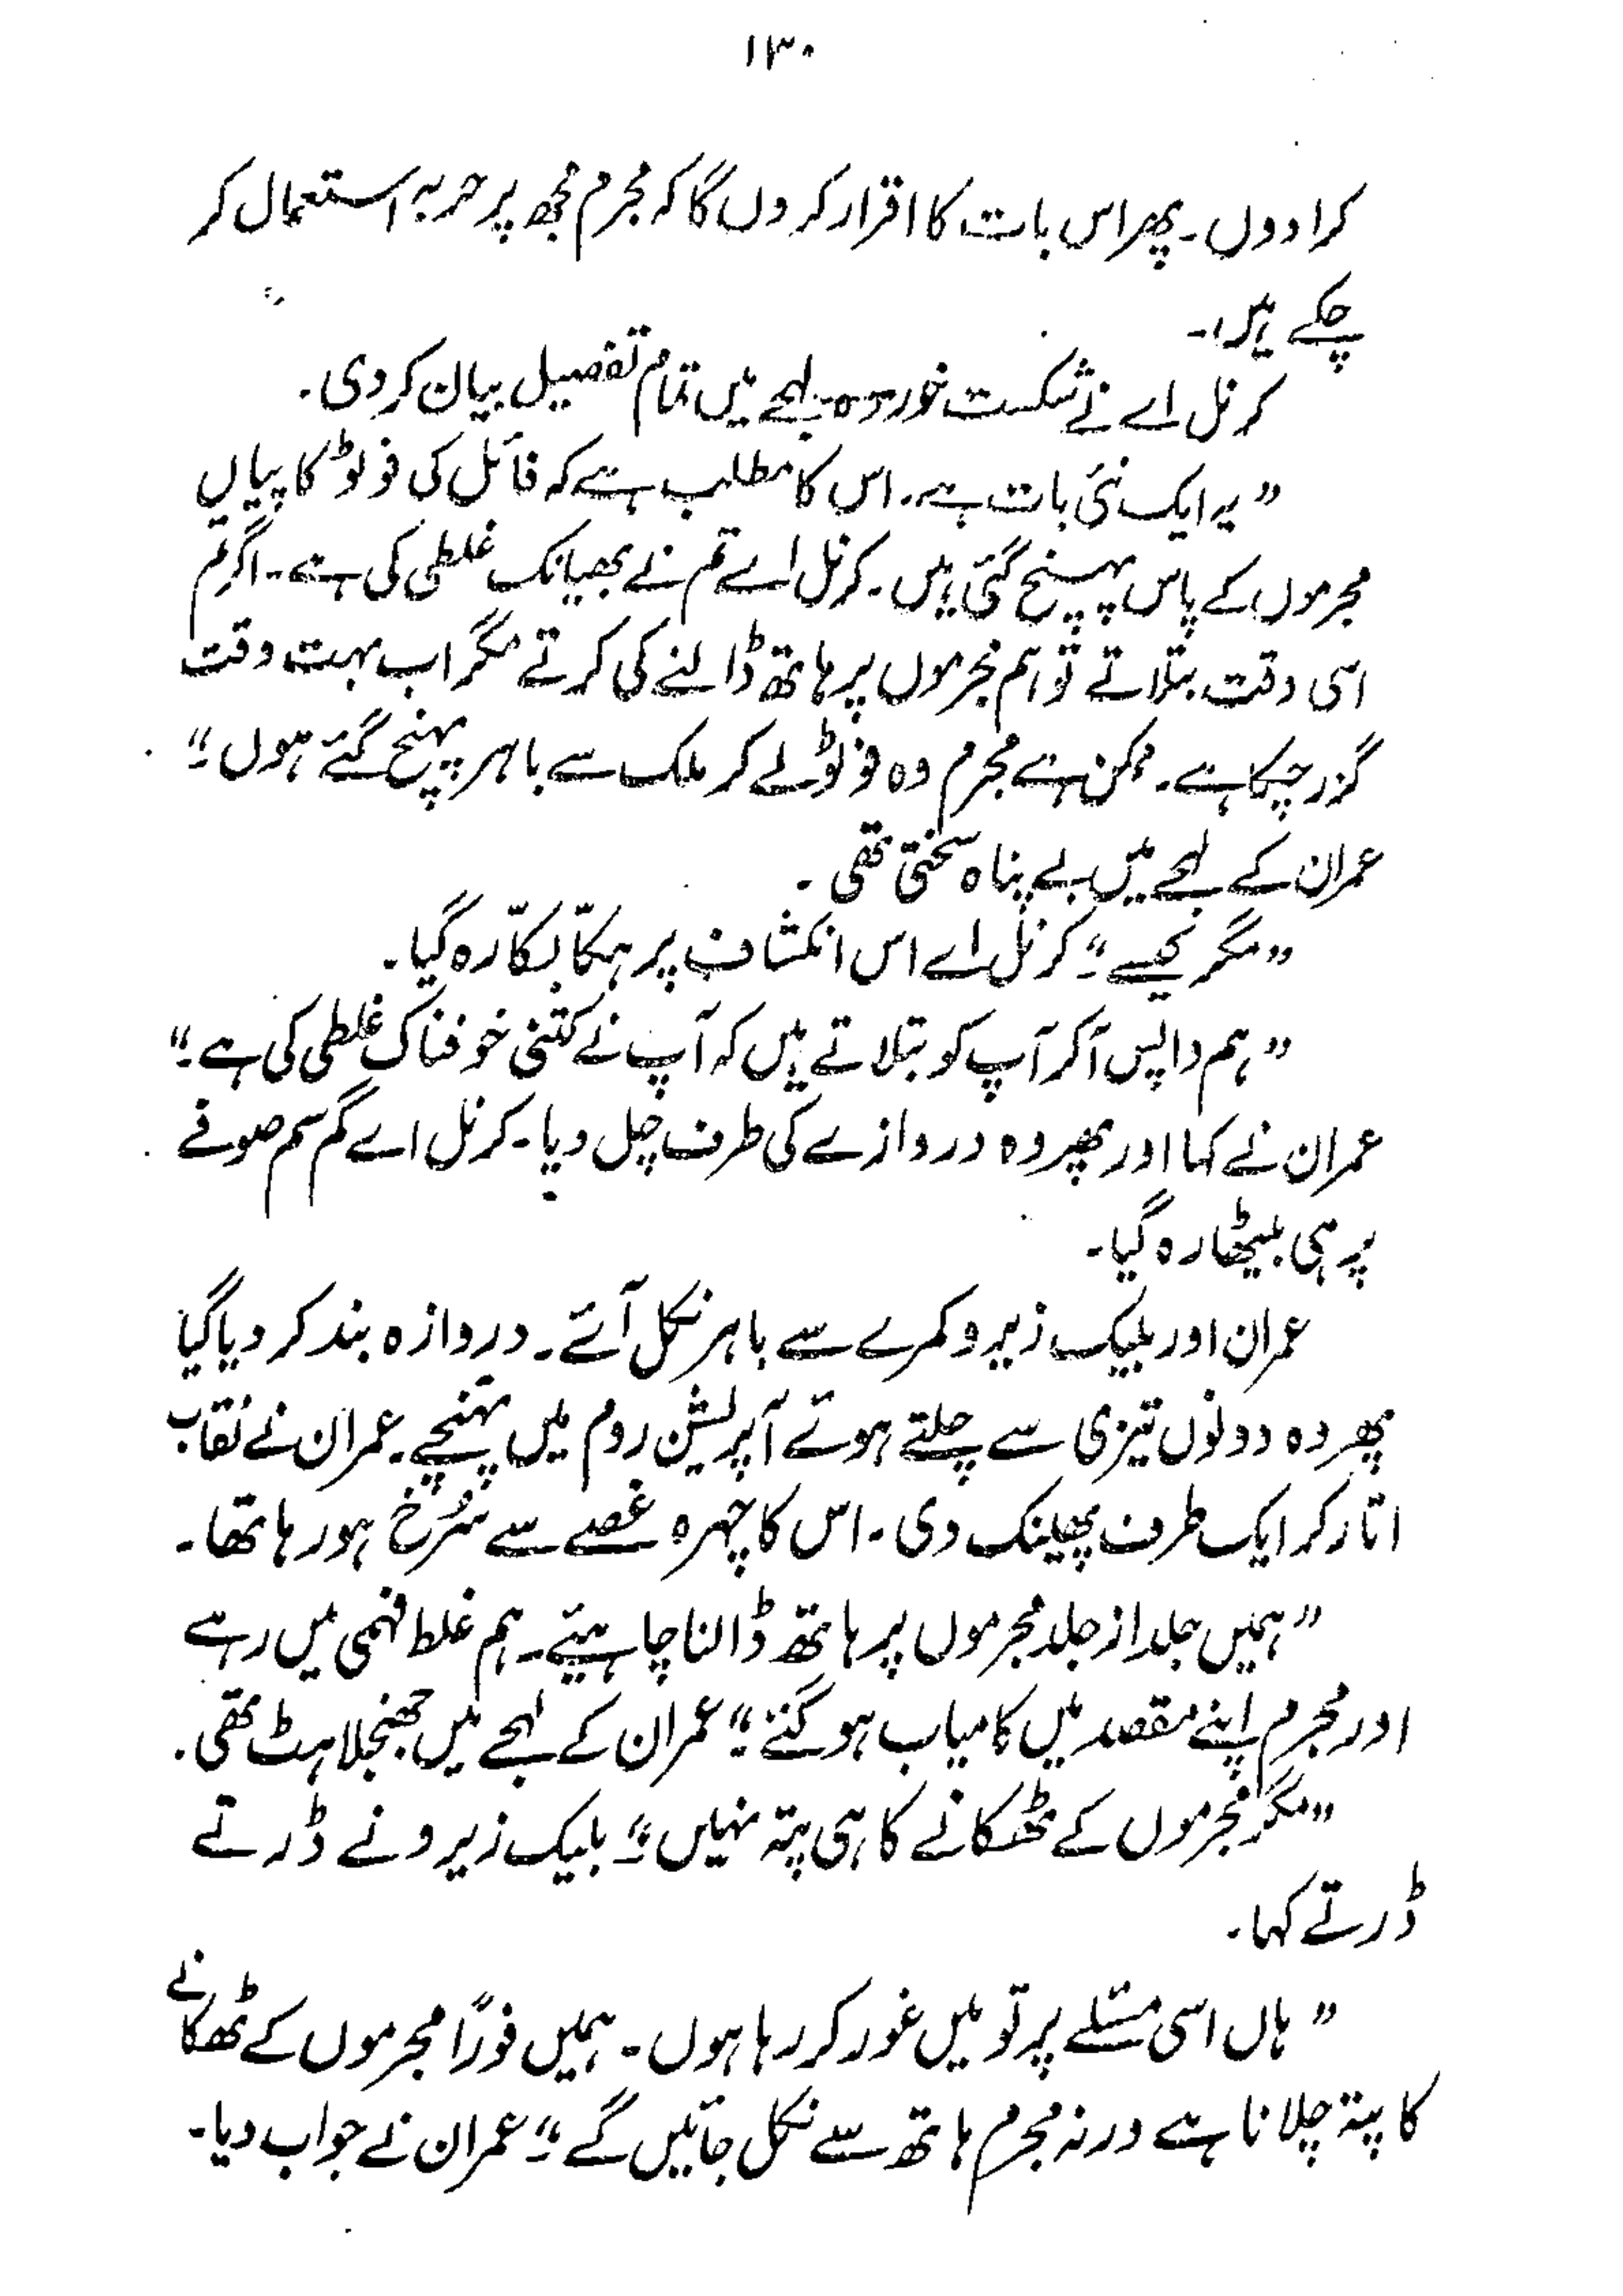 ۱۳۰
کرا دوں۔ پھر اس بات کا اقرار کر وں گا کہ مجرم مجھ پر حربہ استعمال کر
چکے ہیں۔
کرنل اے نے شکست خوردہ لہجے میں تمام تفصیل بیان کر دی۔
”یہ ایک نئی بات ہے۔ اس کا مطلب ہے کہ فائل کی فوٹو کاپیاں
مجرموں کے پاس پہنچ گئی ہیں۔ کرنل اے تم نے بھیانک غلطی کی ہے۔ اگر تم
اسی وقت بتلاتے تو ہم مجرموں پر ہاتھ ڈالنے کی کرتے مگر اب بہت وقت
گزر چکا ہے۔ ممکن ہے مجرم وہ فوٹو لے کر ملک سے باہر پہنچ گئے ہوں۔“
عمران کے لہجے میں بے پناہ سختی تھی۔
”مگر کیسے۔“ کرنل اے اس انکشاف پر ہکّا بکّا رہ گیا۔
”ہم واپس آ کر آپ کو بتلاتے ہیں کہ آپ نے کتنی خوفناک غلطی کی ہے۔“
عمران نے کہا اور پھر وہ دروازے کی طرف چل دیا۔ کرنل اے گم سم صوفے
پر ہی بیٹھا رہ گیا۔
عمران اور بلیک زیرو کمرے سے باہر نکل آئے۔ دروازہ بند کر دیا گیا
پھر وہ دونوں تیزی سے چلتے ہوئے آپریشن روم میں پہنچے۔ عمران نے نقاب
اتار کر ایک طرف پھینک دی۔ اس کا چہرہ غصے سے سُرخ ہو رہا تھا۔
”ہمیں جلد از جلد مجرموں پر ہاتھ ڈالنا چاہیئے۔ ہم غلط فہمی میں رہے
اور مجرم اپنے مقصد میں کامیاب ہو گئے۔“ عمران کے لہجے میں جھنجلاہٹ تھی۔
”مگر مجرموں کے ٹھکانے کا ہی پتہ نہیں۔“ بلیک زیرو نے ڈرتے
ڈرتے کہا۔
”ہاں اسی مسئلے پر تو میں غور کر رہا ہوں۔ ہمیں فوراً مجرموں کے ٹھکانے
کا پتہ چلانا ہے ورنہ مجرم ہاتھ سے نکل جائیں گے۔“ عمران نے جواب دیا۔